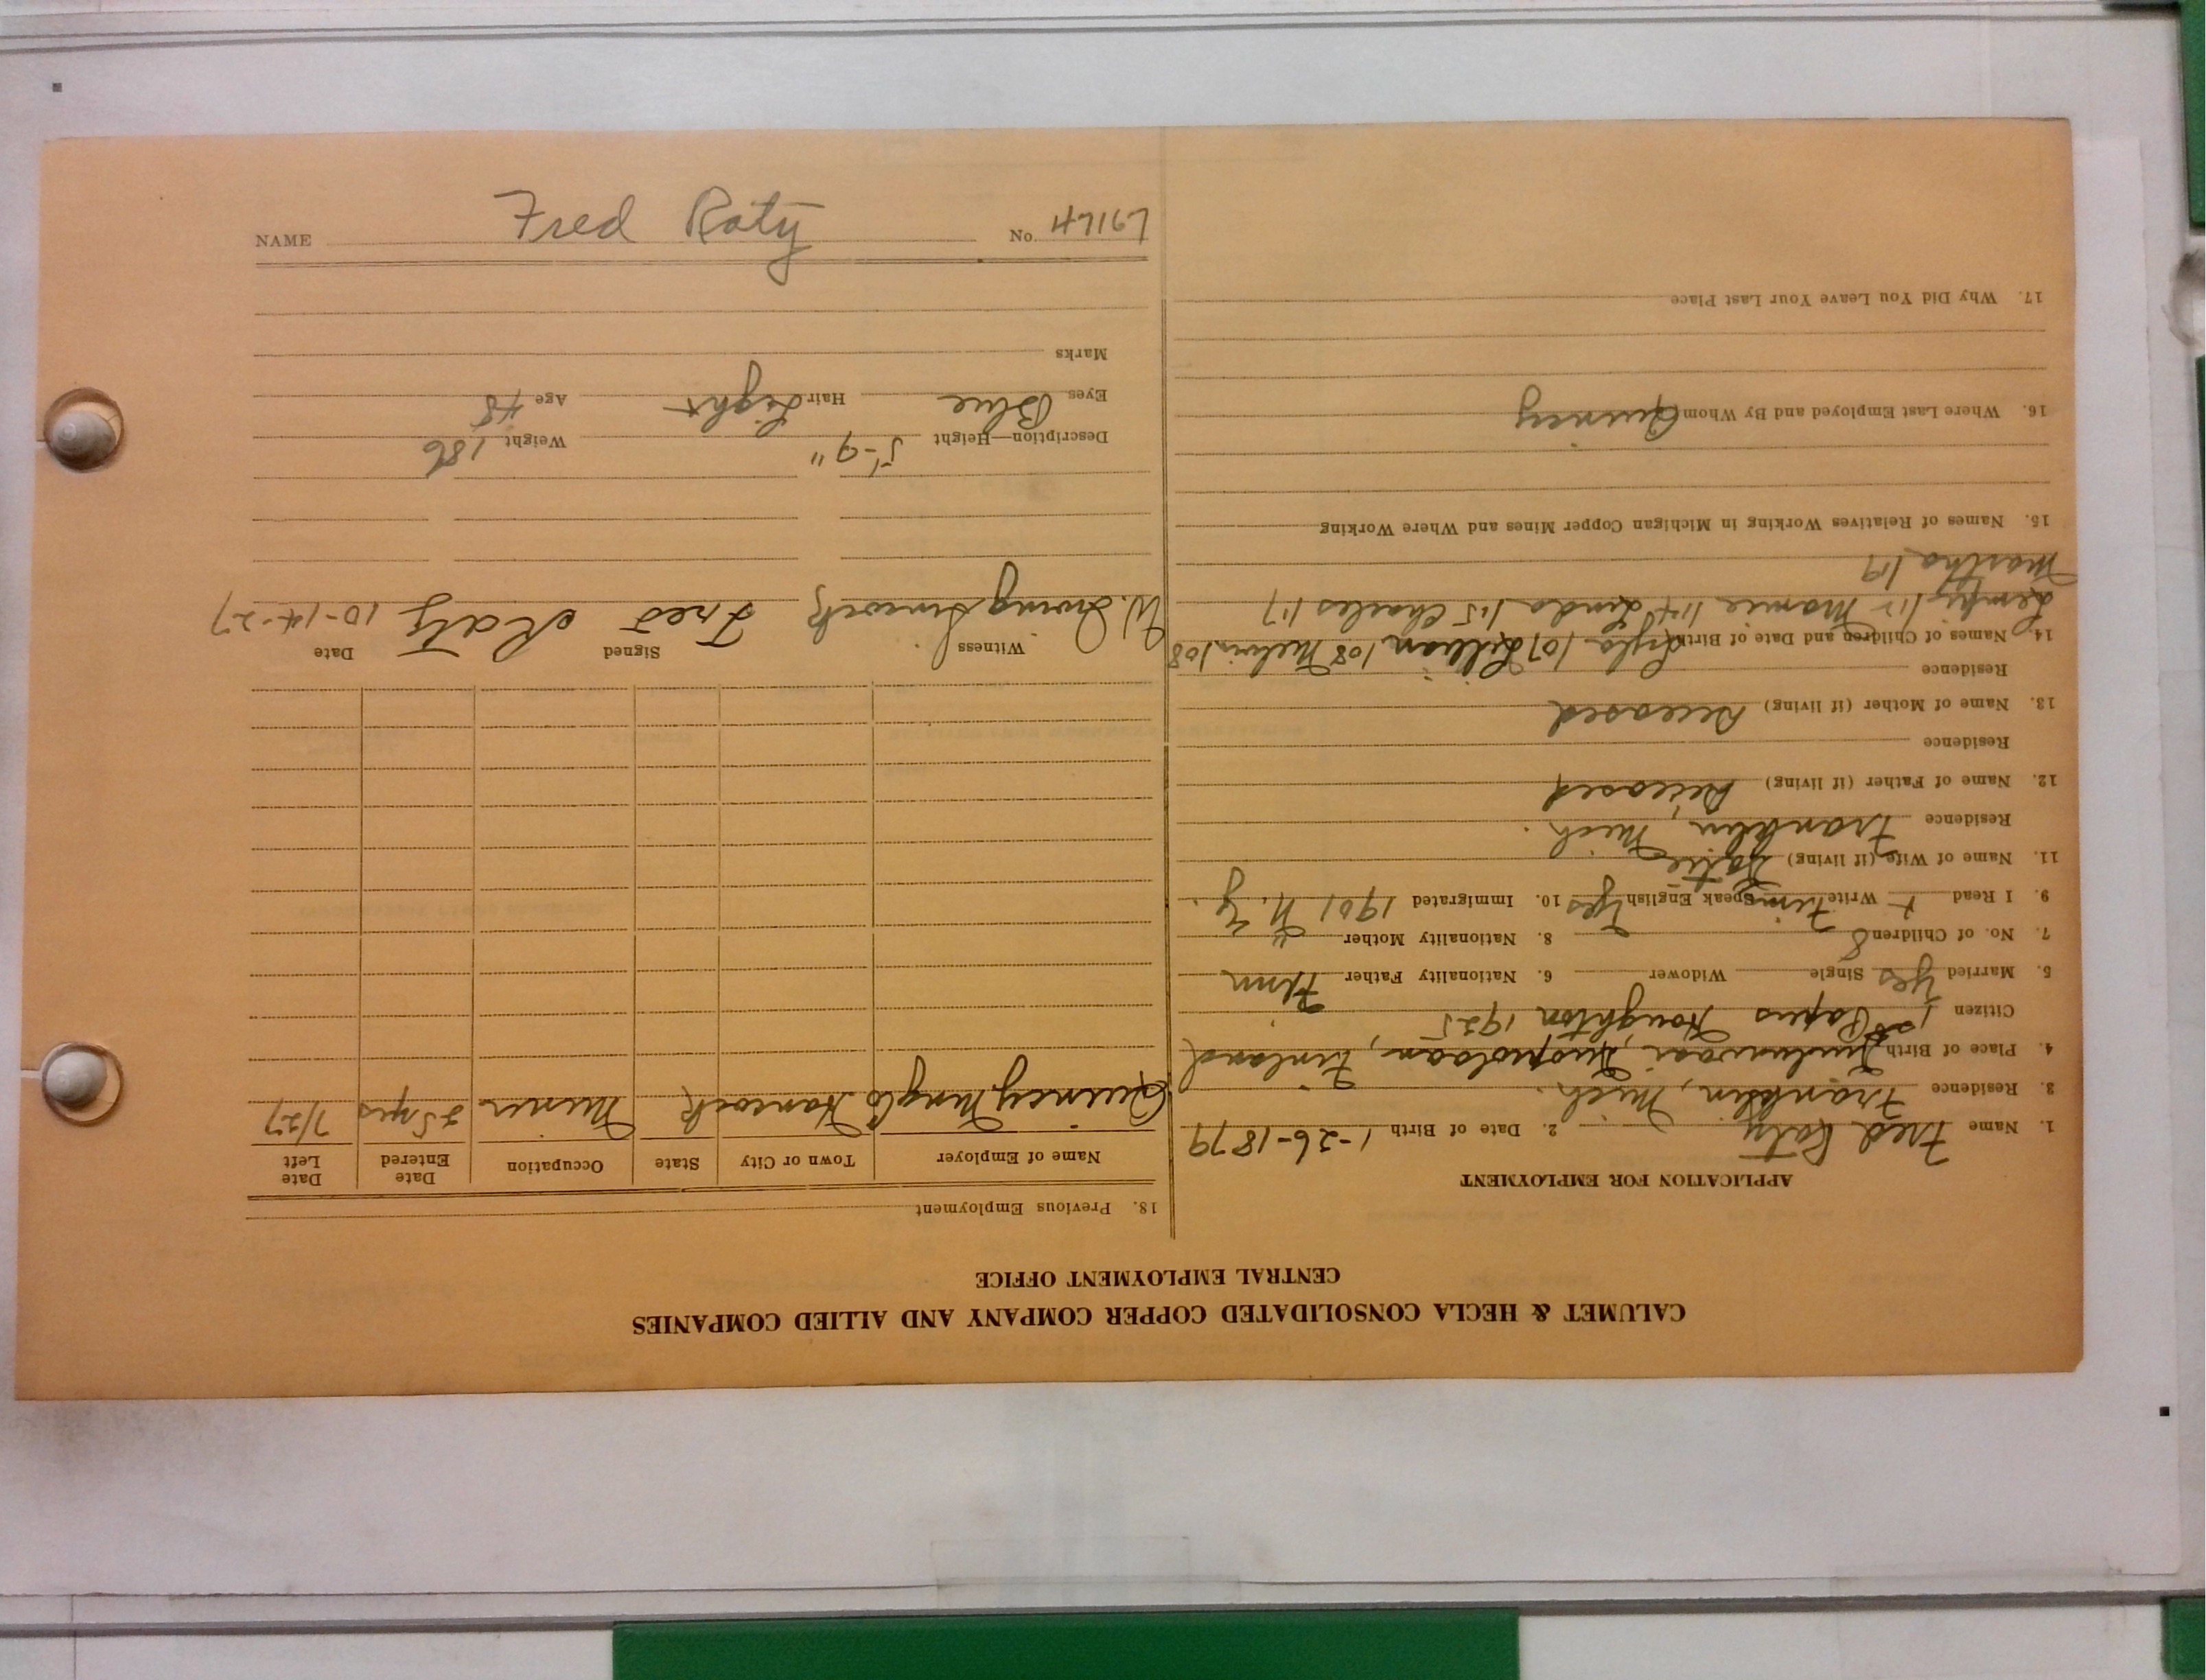 NAME Fred Raty No.
CALUMET & HECLA CONSOLIDATED COPPER COMPANY AND ALLIED COMPANIES
CENTRAL EMPLOYMENT OFFICE
APPLICATION FOR EMPLOYMENT
1. Name Fred Raty 2. Date of Birth 1-26-1879
3. Residence Franklin, Mich.
4. Place of Birth Finland
Citizen 1st Papers Houghton 1925
5. Married Yes Single Widower 6. Nationality Father Finn
7. No. of Children 8 8. Nationality Mother "
9. I Read + Write Finn Speak English Yes 10. Immigrated 1901 N. Y.
11. Name of Wife (if living) Katie
Residence Franklin, Mich.
12. Name of Father (if living) Deceased
Residence
13. Name of Mother (if living) Deceased
Residence
14. Names of Children and Date of Birth Lyla 107 Lillian 108 Melvin 108
Lempy 112 Mamie 114 Linda 115 Charles 117
Martha 119
15. Names of Relatives Working in Michigan Copper Mines and Where Working
16. Where Last Employed and By Whom Quincy
17. Why Did You Leave Your Last Place
18. Previous Employment
Name of Employer Town or City State Occupation Date Entered Date Left
Quincy Mng Co Hancock Miner 25 yrs 7/27
Witness Signed Date
W. Irving Sincock Fred Raty 10-14-27
Description—Height 5'-9" Weight 186
Eyes Blue Hair Light Age 48
Marks